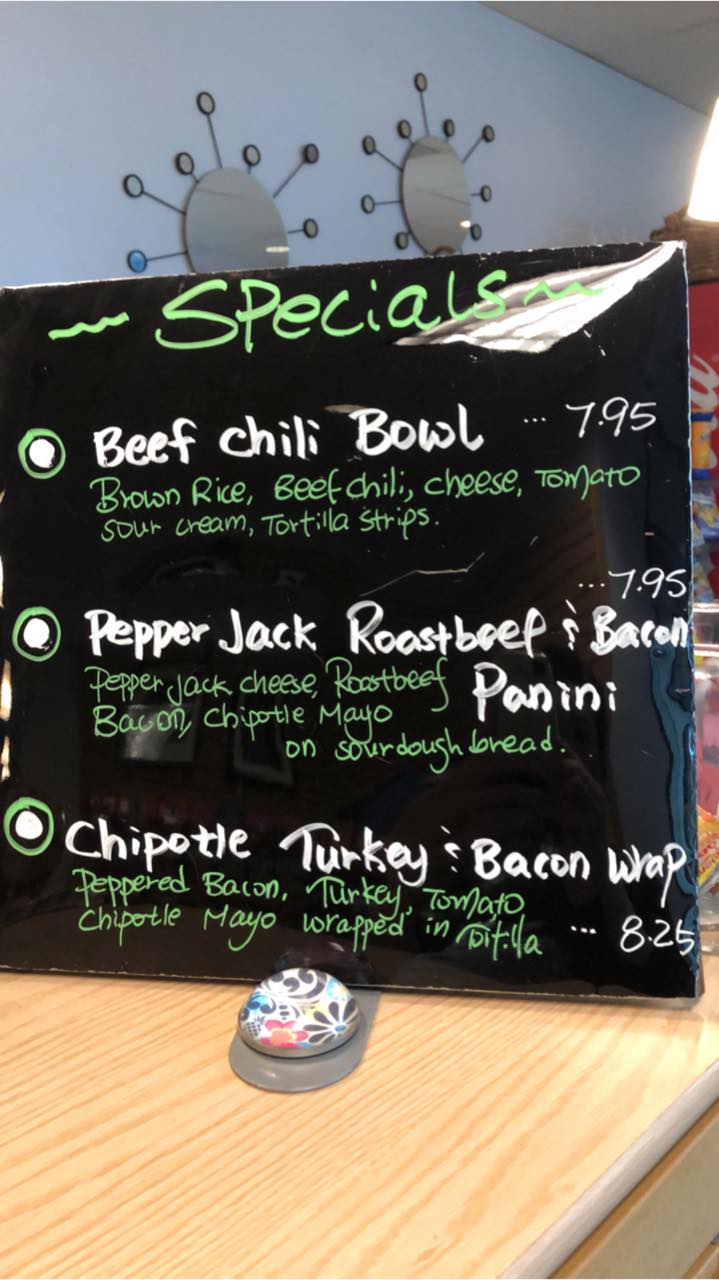 ~ Specials ~
Beef chili Bowl ... 7.95
Brown Rice, Beef chili, cheese, Tomato
sour cream, Tortilla strips.
...7.95
Pepper Jack Roastbeef & Bacon
Pepper jack cheese, Roastbeef Panini
Bacon, Chipotle Mayo
on sourdough bread.
Chipotle Turkey & Bacon Wrap
Peppered Bacon, Turkey, Tomato
Chipotle Mayo wrapped in Tortilla ... 8.25